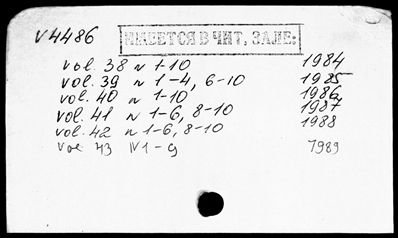 V4486
ИМЕЕТСЯ В ЧИТ. ЗАЛЕ.
vol. 38 n 1-10 1984
vol. 39 n 1-4, 6-10 1985
vol. 40 n 1-10 1986
vol. 41 n 1-6, 8-10 1987
vol. 42 n 1-6, 8-10 1988
vol 43 N 1-9 1989